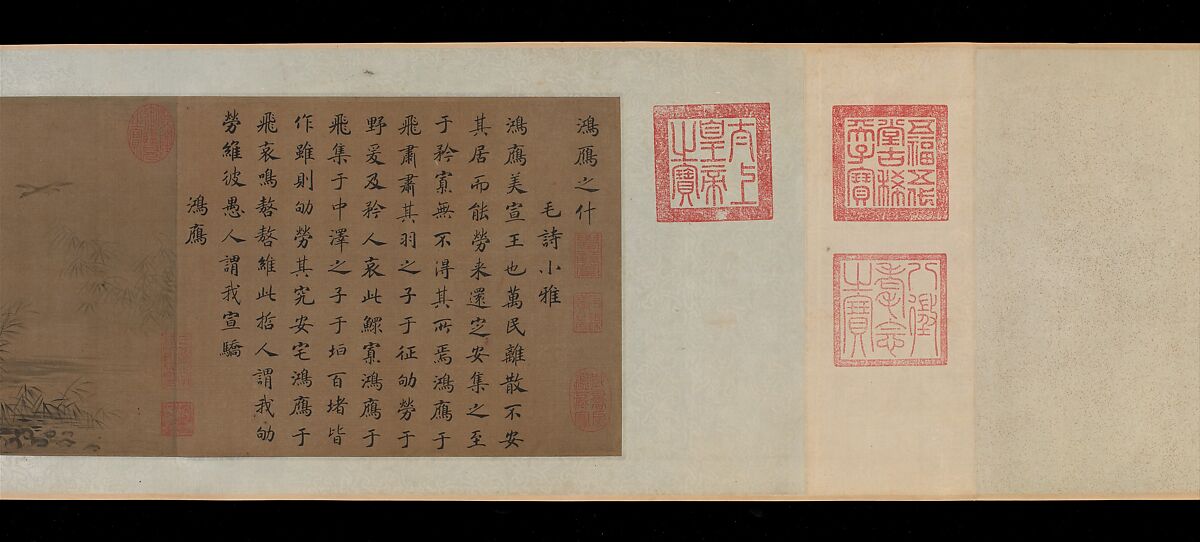 五福五代
堂古稀
天子寶
八徵
耄念
之寶
太上
皇帝
之寶
鴻鴈之什
毛詩小雅
鴻鴈美宣王也萬民離散不安
其居而能勞来還㝎安集之至
于矜寡無不得其所焉鴻鴈于
飛肅肅其羽之子于征劬勞于
野爰及矜人哀此鰥寡鴻鴈于
飛集于中澤之子于垣百堵皆
作雖則劬勞其究安宅鴻鴈于
飛哀鳴嗸嗸維此哲人謂我劬
勞維彼愚人謂我宣驕
鴻鴈